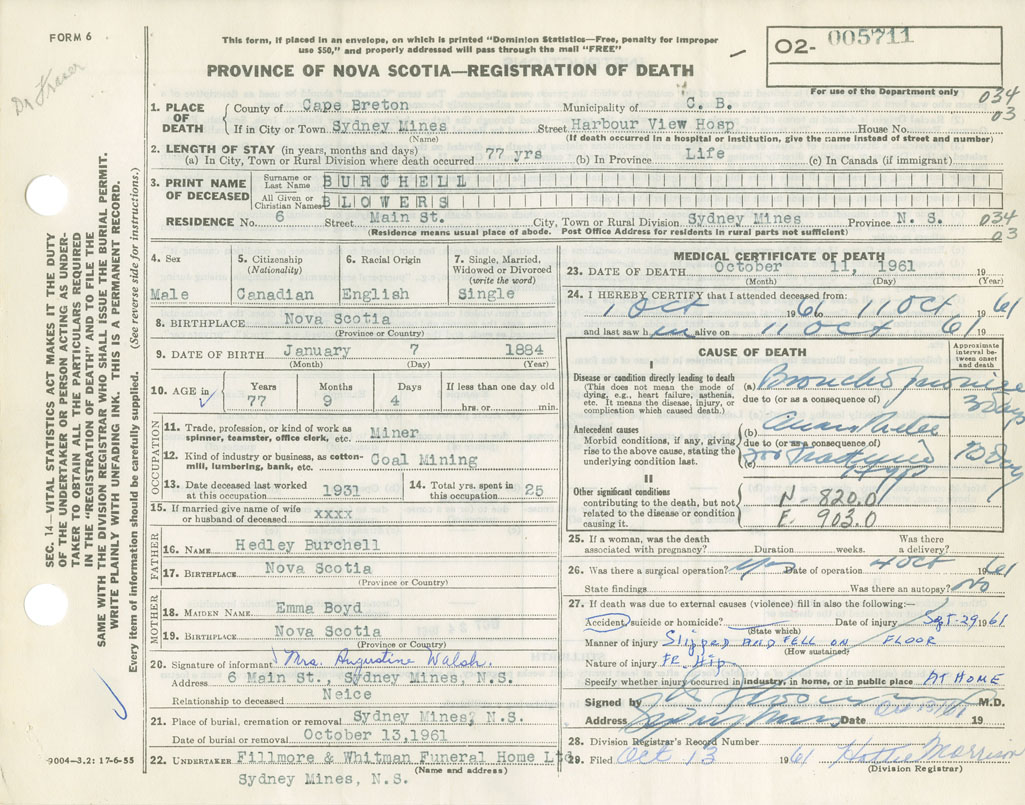 FORM 6
Dr Fraser
This form, if placed in an envelope, on which is printed "Dominion Statistics—Free, penalty for improper
use $50," and properly addressed will pass through the mail "FREE"
PROVINCE OF NOVA SCOTIA—REGISTRATION OF DEATH
02- 005711
For use of the Department only
034
03
SEC. 14—VITAL STATISTICS ACT MAKES IT THE DUTY
OF THE UNDERTAKER OR PERSON ACTING AS UNDER-
TAKER TO OBTAIN ALL THE PARTICULARS REQUIRED
IN THE "REGISTRATION OF DEATH" AND TO FILE THE
SAME WITH THE DIVISION REGISTRAR WHO SHALL ISSUE THE BURIAL PERMIT.
WRITE PLAINLY WITH UNFADING INK. THIS IS A PERMANENT RECORD.
Every item of information should be carefully supplied. (See reverse side for instructions.)
1. PLACE OF DEATH County of Cape Breton Municipality of C. B.
If in City or Town Sydney Mines Street Harbour View Hosp House No.
(Name) (If death occurred in a hospital or institution, give the name instead of street and number)
2. LENGTH OF STAY (in years, months and days)
(a) In City, Town or Rural Division where death occurred 77 yrs (b) In Province Life (c) In Canada (if immigrant)
3. PRINT NAME OF DECEASED Surname or Last Name BURCHELL
All Given or Christian Names BLOWERS
RESIDENCE No. 6 Street Main St. City, Town or Rural Division Sydney Mines Province N. S.
034
03
(Residence means usual place of abode. Post Office Address for residents in rural parts not sufficient)
4. Sex
Male
5. Citizenship
(Nationality)
Canadian
6. Racial Origin
English
7. Single, Married,
Widowed or Divorced
(write the word)
Single
8. BIRTHPLACE Nova Scotia
(Province or Country)
9. DATE OF BIRTH January 7 1884
(Month) (Day) (Year)
10. AGE in Years Months Days If less than one day old
77 9 4 hrs. or min.
OCCUPATION
11. Trade, profession, or kind of work as
spinner, teamster, office clerk, etc. Miner
12. Kind of industry or business, as cotton-
mill, lumbering, bank, etc. Coal Mining
13. Date deceased last worked
at this occupation 1931
14. Total yrs. spent in
this occupation 25
15. If married give name of wife
or husband of deceased xxxx
FATHER
16. NAME Hedley Burchell
17. BIRTHPLACE Nova Scotia
(Province or Country)
MOTHER
18. MAIDEN NAME Emma Boyd
19. BIRTHPLACE Nova Scotia
(Province or Country)
20. Signature of informant Mrs. Augustine Walsh.
Address 6 Main St., Sydney Mines, N.S.
Relationship to deceased Neice
21. Place of burial, cremation or removal Sydney Mines, N.S.
Date of burial or removal October 13,1961
22. UNDERTAKER Fillmore & Whitman Funeral Home Ltd
(Name and address)
Sydney Mines, N.S.
9004—3.2: 17-6-55
MEDICAL CERTIFICATE OF DEATH
23. DATE OF DEATH October 11, 1961 19
(Month) (Day) (Year)
24. I HEREBY CERTIFY that I attended deceased from:
1 Oct 1961 to 11 Oct 1961
and last saw him alive on 11 Oct 61 19
CAUSE OF DEATH
Approximate
interval be-
tween onset
and death
I
Disease or condition directly leading to death
(This does not mean the mode of
dying, e.g., heart failure, asthenia,
etc. It means the disease, injury, or
complication which caused death.)
(a)
due to (or as a consequence of)
3 days
Antecedent causes
Morbid conditions, if any, giving
rise to the above cause, stating the
underlying condition last.
(b)
due to (or as a consequence of)
(c)
II
Other significant conditions
contributing to the death, but not
related to the disease or condition
causing it.
N - 820.0
E. 903.0
25. If a woman, was the death
associated with pregnancy? Duration weeks. Was there
a delivery?
26. Was there a surgical operation? yes Date of operation 4 Oct 1961
State findings Was there an autopsy? No
27. If death was due to external causes (violence) fill in also the following:—
Accident, suicide or homicide? Date of injury Sept-29 1961
(State which)
Manner of injury Slipped AND FELL ON FLOOR
(How sustained)
Nature of injury FR. Hip
Specify whether injury occurred in industry, in home, or in public place AT HOME
Signed by M.D.
Address Sydney Mines Date 19
28. Division Registrar's Record Number
29. Filed Oct 13 1961 Hattie Morrison
(Division Registrar)